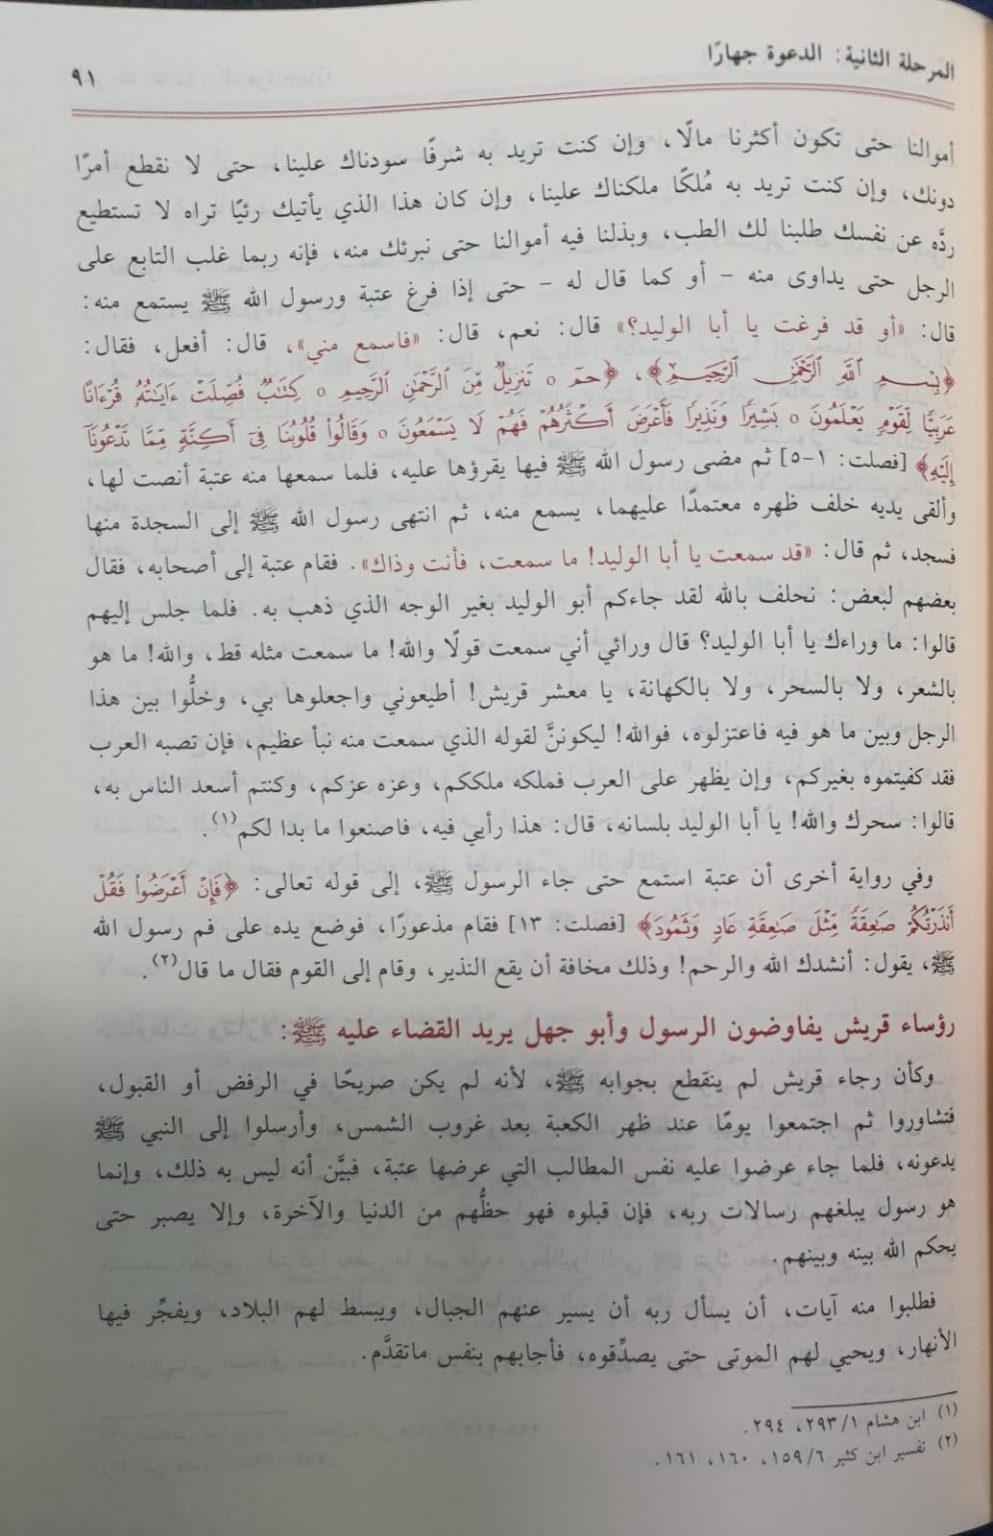 المرحلة الثانية: الدعوة جهارًا
٩١
أموالنا حتى تكون أكثرنا مالًا، وإن كنت تريد به شرفًا سودناك علينا، حتى لا نقطع أمرًا
دونك، وإن كنت تريد به مُلكًا ملكناك علينا، وإن كان هذا الذي يأتيك رئيًا تراه لا تستطيع
ردَّه عن نفسك طلبنا لك الطب، وبذلنا فيه أموالنا حتى نبرئك منه، فإنه ربما غلب التابع على
الرجل حتى يداوى منه – أو كما قال له – حتى إذا فرغ عتبة ورسول الله ﷺ يستمع منه:
قال: «أو قد فرغت يا أبا الوليد؟» قال: نعم، قال: «فاسمع مني»، قال: أفعل، فقال:
﴿بِسْمِ ٱللَّهِ ٱلرَّحْمَٰنِ ٱلرَّحِيمِ﴾، ﴿حمٓ ٥ تَنزِيلٌ مِّنَ ٱلرَّحْمَٰنِ ٱلرَّحِيمِ ٥ كِتَٰبٌ فُصِّلَتْ ءَايَٰتُهُۥ قُرْءَانًا
عَرَبِيًّا لِّقَوْمٍ يَعْلَمُونَ ٥ بَشِيرًا وَنَذِيرًا فَأَعْرَضَ أَكْثَرُهُمْ فَهُمْ لَا يَسْمَعُونَ ٥ وَقَالُوا۟ قُلُوبُنَا فِىٓ أَكِنَّةٍ مِّمَّا تَدْعُونَآ
إِلَيْهِ﴾ [فصلت: ١-٥] ثم مضى رسول الله ﷺ فيها يقرؤها عليه، فلما سمعها منه عتبة أنصت لها،
وألقى يديه خلف ظهره معتمدًا عليهما، يسمع منه، ثم انتهى رسول الله ﷺ إلى السجدة منها
فسجد، ثم قال: «قد سمعت يا أبا الوليد! ما سمعت، فأنت وذاك». فقام عتبة إلى أصحابه، فقال
بعضهم لبعض: نحلف بالله لقد جاءكم أبو الوليد بغير الوجه الذي ذهب به. فلما جلس إليهم
قالوا: ما وراءك يا أبا الوليد؟ قال ورائي أني سمعت قولًا والله! ما سمعت مثله قط، والله! ما هو
بالشعر، ولا بالسحر، ولا بالكهانة، يا معشر قريش! أطيعوني واجعلوها بي، وخلُّوا بين هذا
الرجل وبين ما هو فيه فاعتزلوه، فوالله! ليكوننَّ لقوله الذي سمعت منه نبأ عظيم، فإن تصبه العرب
فقد كفيتموه بغيركم، وإن يظهر على العرب فملكه ملككم، وعزه عزكم، وكنتم أسعد الناس به،
قالوا: سحرك والله! يا أبا الوليد بلسانه، قال: هذا رأيي فيه، فاصنعوا ما بدا لكم(١).
وفي رواية أخرى أن عتبة استمع حتى جاء الرسول ﷺ، إلى قوله تعالى: ﴿فَإِنْ أَعْرَضُوا۟ فَقُلْ
أَنذَرْتُكُمْ صَٰعِقَةً مِّثْلَ صَٰعِقَةِ عَادٍ وَثَمُودَ﴾ [فصلت: ١٣] فقام مذعورًا، فوضع يده على فم رسول الله
ﷺ، يقول: أنشدك الله والرحم! وذلك مخافة أن يقع النذير، وقام إلى القوم فقال ما قال(٢).
رؤساء قريش يفاوضون الرسول وأبو جهل يريد القضاء عليه ﷺ:
وكأن رجاء قريش لم ينقطع بجوابه ﷺ، لأنه لم يكن صريحًا في الرفض أو القبول،
فتشاوروا ثم اجتمعوا يومًا عند ظهر الكعبة بعد غروب الشمس، وأرسلوا إلى النبي ﷺ
يدعونه، فلما جاء عرضوا عليه نفس المطالب التي عرضها عتبة، فبيَّن أنه ليس به ذلك، وإنما
هو رسول يبلغهم رسالات ربه، فإن قبلوه فهو حظُّهم من الدنيا والآخرة، وإلا يصبر حتى
يحكم الله بينه وبينهم.
فطلبوا منه آيات، أن يسأل ربه أن يسير عنهم الجبال، ويبسط لهم البلاد، ويفجِّر فيها
الأنهار، ويحيي لهم الموتى حتى يصدِّقوه، فأجابهم بنفس ماتقدَّم.
(١) ابن هشام ٢٩٣/١، ٢٩٤.
(٢) تفسير ابن كثير ١٥٩/٦، ١٦٠، ١٦١.